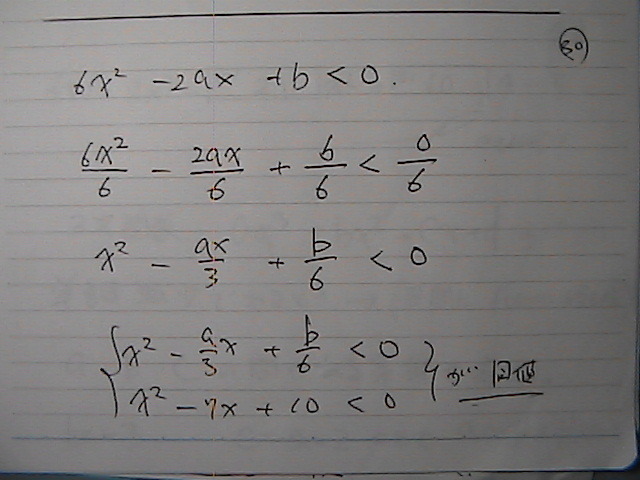 30
6x² - 2ax + b < 0.
6x²/6 - 2ax/6 + b/6 < 0/6
x² - ax/3 + b/6 < 0
{ x² - a/3 x + b/6 < 0 }
{ x² - 7x + 10 < 0 }